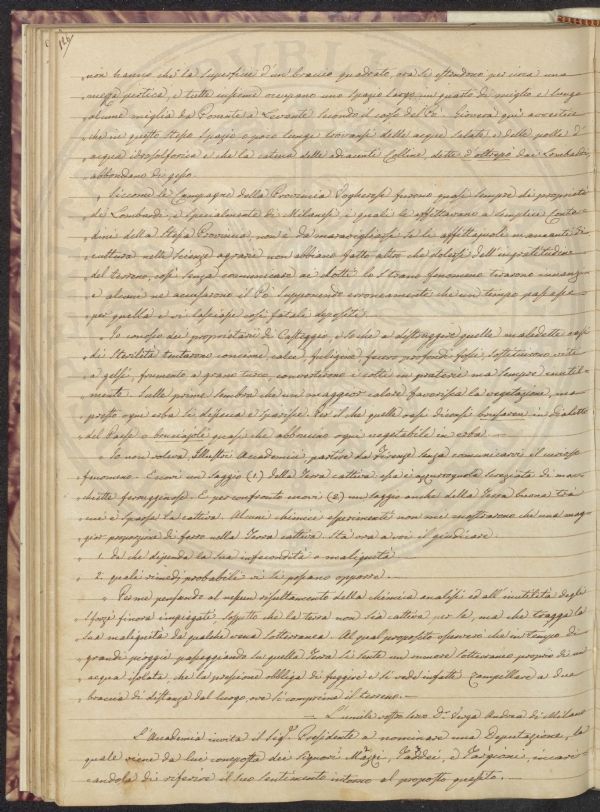 126
„ non hanno che la superficie d'un braccio quadrato, ora si estendono per circa una
„ mezza pertica, e tutte insieme occupano uno spazio largo un quarto di miglio e lungo
„ alcune miglia da Ponente a Levante secondo il corso del Pò. Gioverà quì avvertire
„ che in questo stesso spazio o poco lunge trovansi delle acque salate e delle polle d'
„ acqua idrosolforica e che la catena delle adiacenti Colline, dette d'oltrepò dai Lombardi,
„ abbondano di gesso.
„ Siccome le Campagne della Provincia Vogherese furono quasi sempre di proprietà
„ de' Lombardi, e specialmente di Milanesi, i quali le affittavano a semplici Conta-
„ dini della stessa Provincia, non è da maravigliarsi se le affittajuoli mancanti di
„ cultura nelle scienze agrarie non abbiano fatto altro che dolersi dell'ingratitudine
„ del terreno, così senza comunicare ai dotti lo strano fenomeno tirarono innanzi
„ e alcuni ne accusarono il Pò supponendo erroneamente che un tempo passasse
„ per quella e vi lasciasse così fatali depositi.
„ Io conosco dei proprietarii di Casteggio, e so che a distruggere quelle maledette oasi
„ di sterilità tentarono concime, calce, fuligine, fecero profondi fossi, sostituirono viti
„ a gelsi, frumento a grano turco, convertirono i colti in praterie ma sempre inutil-
„ mente. Sulle prime sembra che un maggior calore favorisca la vegetazione, ma
„ presto ogni erba si dissecca e sparisce. Per il che quelle oasi diconsi brusaroeu in dialetto
„ del Paese o bruciajole quasi che abbrucino ogni vegetabile in erba —
„ Io non voleva Illustri Accademici partire da Firenze senza comunicarvi il curioso
„ fenomeno. Eccovi un saggio (1) della Terra cattiva essa è azzurrognola screziata di mac-
„ chiette ferrugginose. E per confronto eccovi (2) un saggio anche della Terra buona tra
„ cui è sparsa la cattiva. Alcuni chimici esperimenti non mi mostrarono che una mag-
„ gior proporzione di ferro nella Terra cattiva. Sta ora a voi il giudicare
„ 1. da che dipenda la sua infecondità o malignità
„ 2. quali rimedj probabili vi si possano opporre. —
„ Per me pensando al nessun risultamento della chimica analisi ed all'inutilità degli
„ sforzi finora impiegati, sospetto che la terra non sia cattiva per se, ma che tragga la
„ sua malignità da qualche vena sotterranea. Al qual proposito osserverò che in tempo di
„ grandi pioggie passeggiando su quella Terra si sente un rumore sotterraneo proprio di un
„ acqua isolata, che la pressione obbliga di fuggire e si vede infatti zampillare a due
„ braccia di distanza dal luogo, ove si comprime il terreno. —
— L'umile vostro servo D.r Verga Andrea di Milano
L'Accademia invita il Sig.r Presidente a nominare una Deputazione, la
quale viene da lui composta dei Signori Mazzi, Taddei, e Targioni, incari-
candola di riferire il suo sentimento intorno al proposto quesito. —